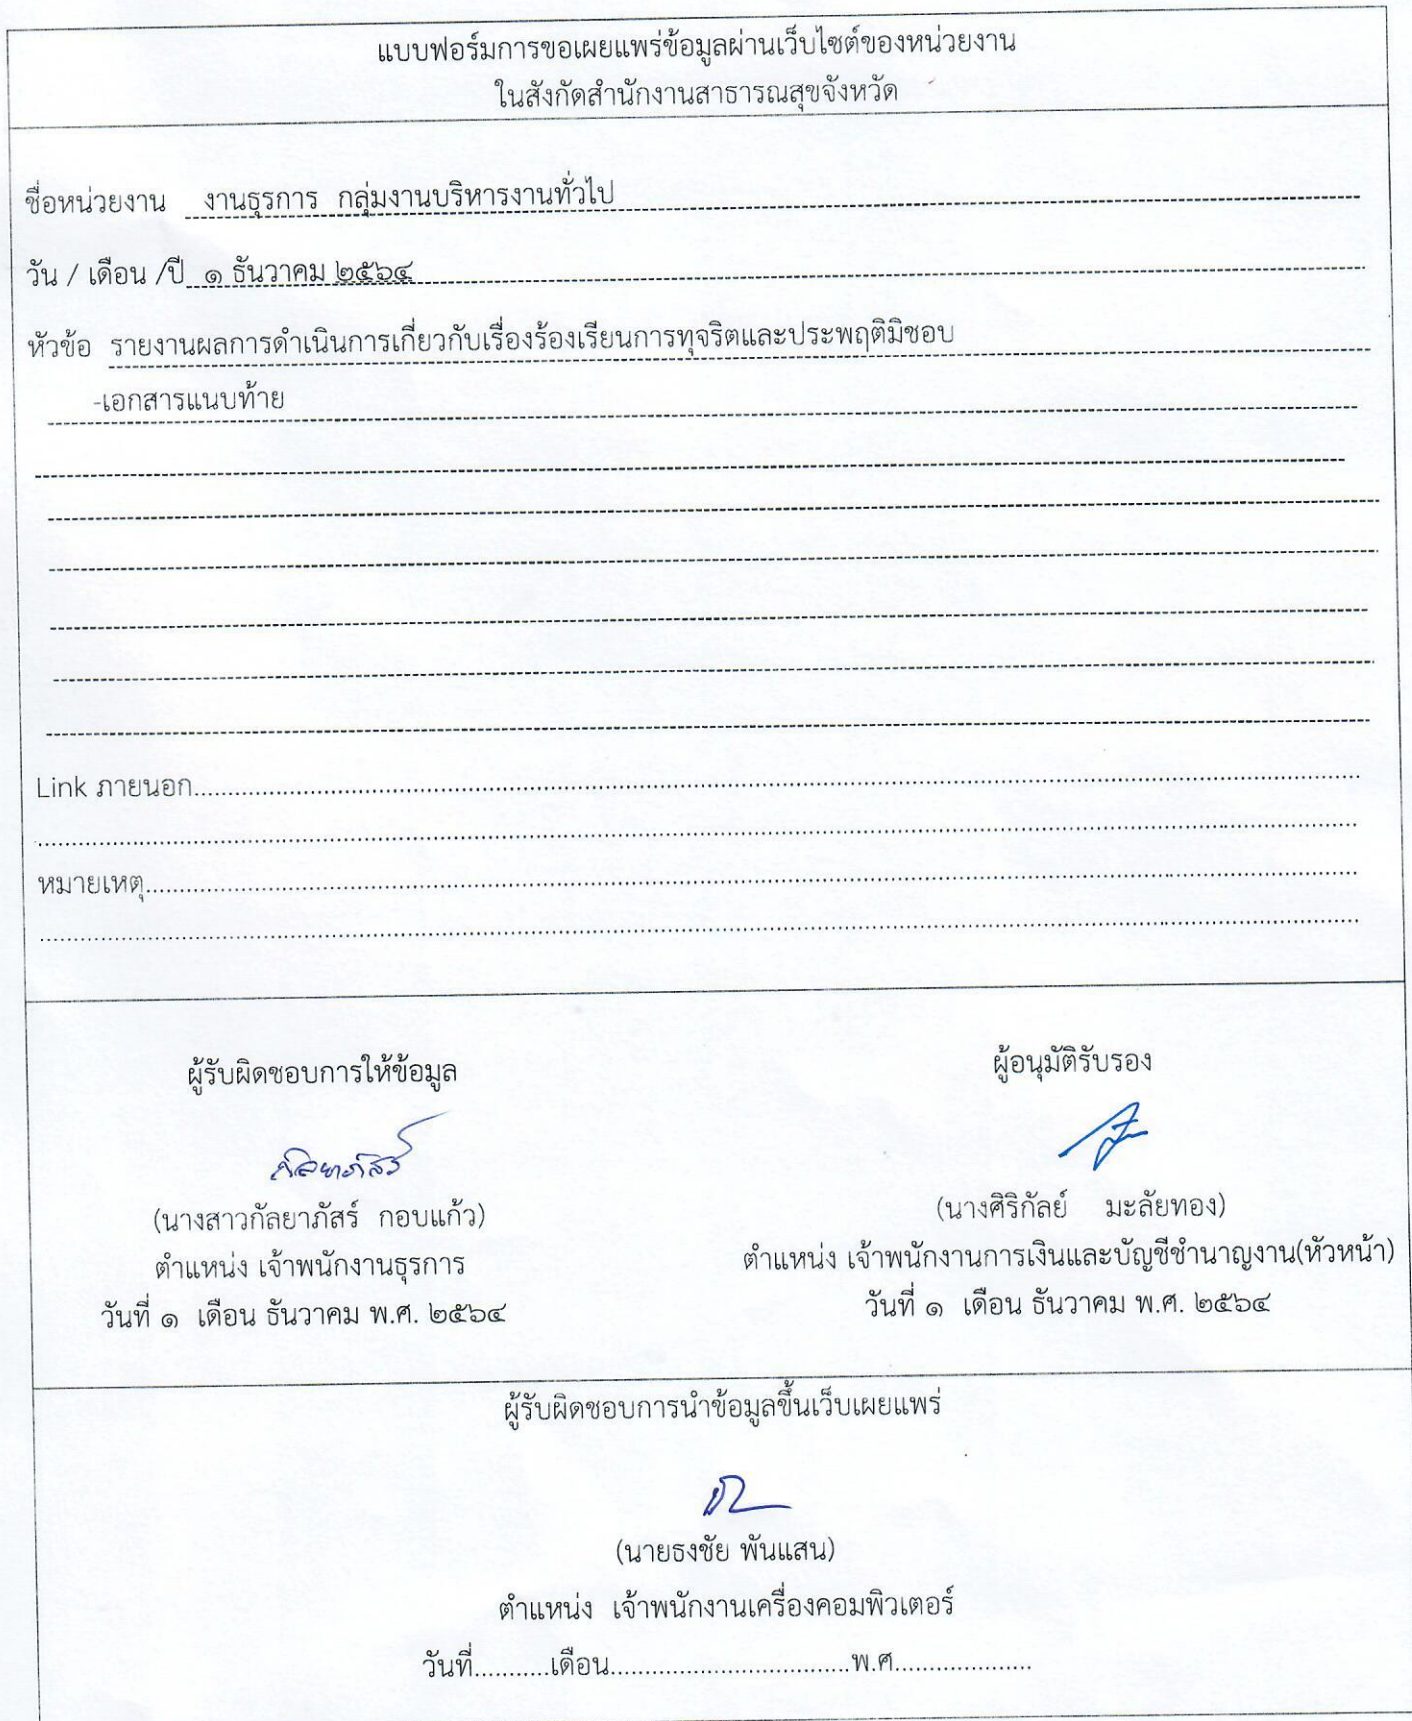 แบบฟอร์มการขอเผยแพร่ข้อมูลผ่านเว็บไซต์ของหน่วยงาน
ในสังกัดสำนักงานสาธารณสุขจังหวัด
ชื่อหน่วยงาน งานธุรการ กลุ่มงานบริหารงานทั่วไป
วัน / เดือน /ปี ๑ ธันวาคม ๒๕๖๔
หัวข้อ รายงานผลการดำเนินการเกี่ยวกับเรื่องร้องเรียนการทุจริตและประพฤติมิชอบ
-เอกสารแนบท้าย
Link ภายนอก
หมายเหตุ
ผู้รับผิดชอบการให้ข้อมูล
กัลยาภัสร์
(นางสาวกัลยาภัสร์ กอบแก้ว)
ตำแหน่ง เจ้าพนักงานธุรการ
วันที่ ๑ เดือน ธันวาคม พ.ศ. ๒๕๖๔
ผู้อนุมัติรับรอง
(นางศิริกัลย์ มะลัยทอง)
ตำแหน่ง เจ้าพนักงานการเงินและบัญชีชำนาญงาน(หัวหน้า)
วันที่ ๑ เดือน ธันวาคม พ.ศ. ๒๕๖๔
ผู้รับผิดชอบการนำข้อมูลขึ้นเว็บเผยแพร่
(นายธงชัย พันแสน)
ตำแหน่ง เจ้าพนักงานเครื่องคอมพิวเตอร์
วันที่...........เดือน...................................พ.ศ....................